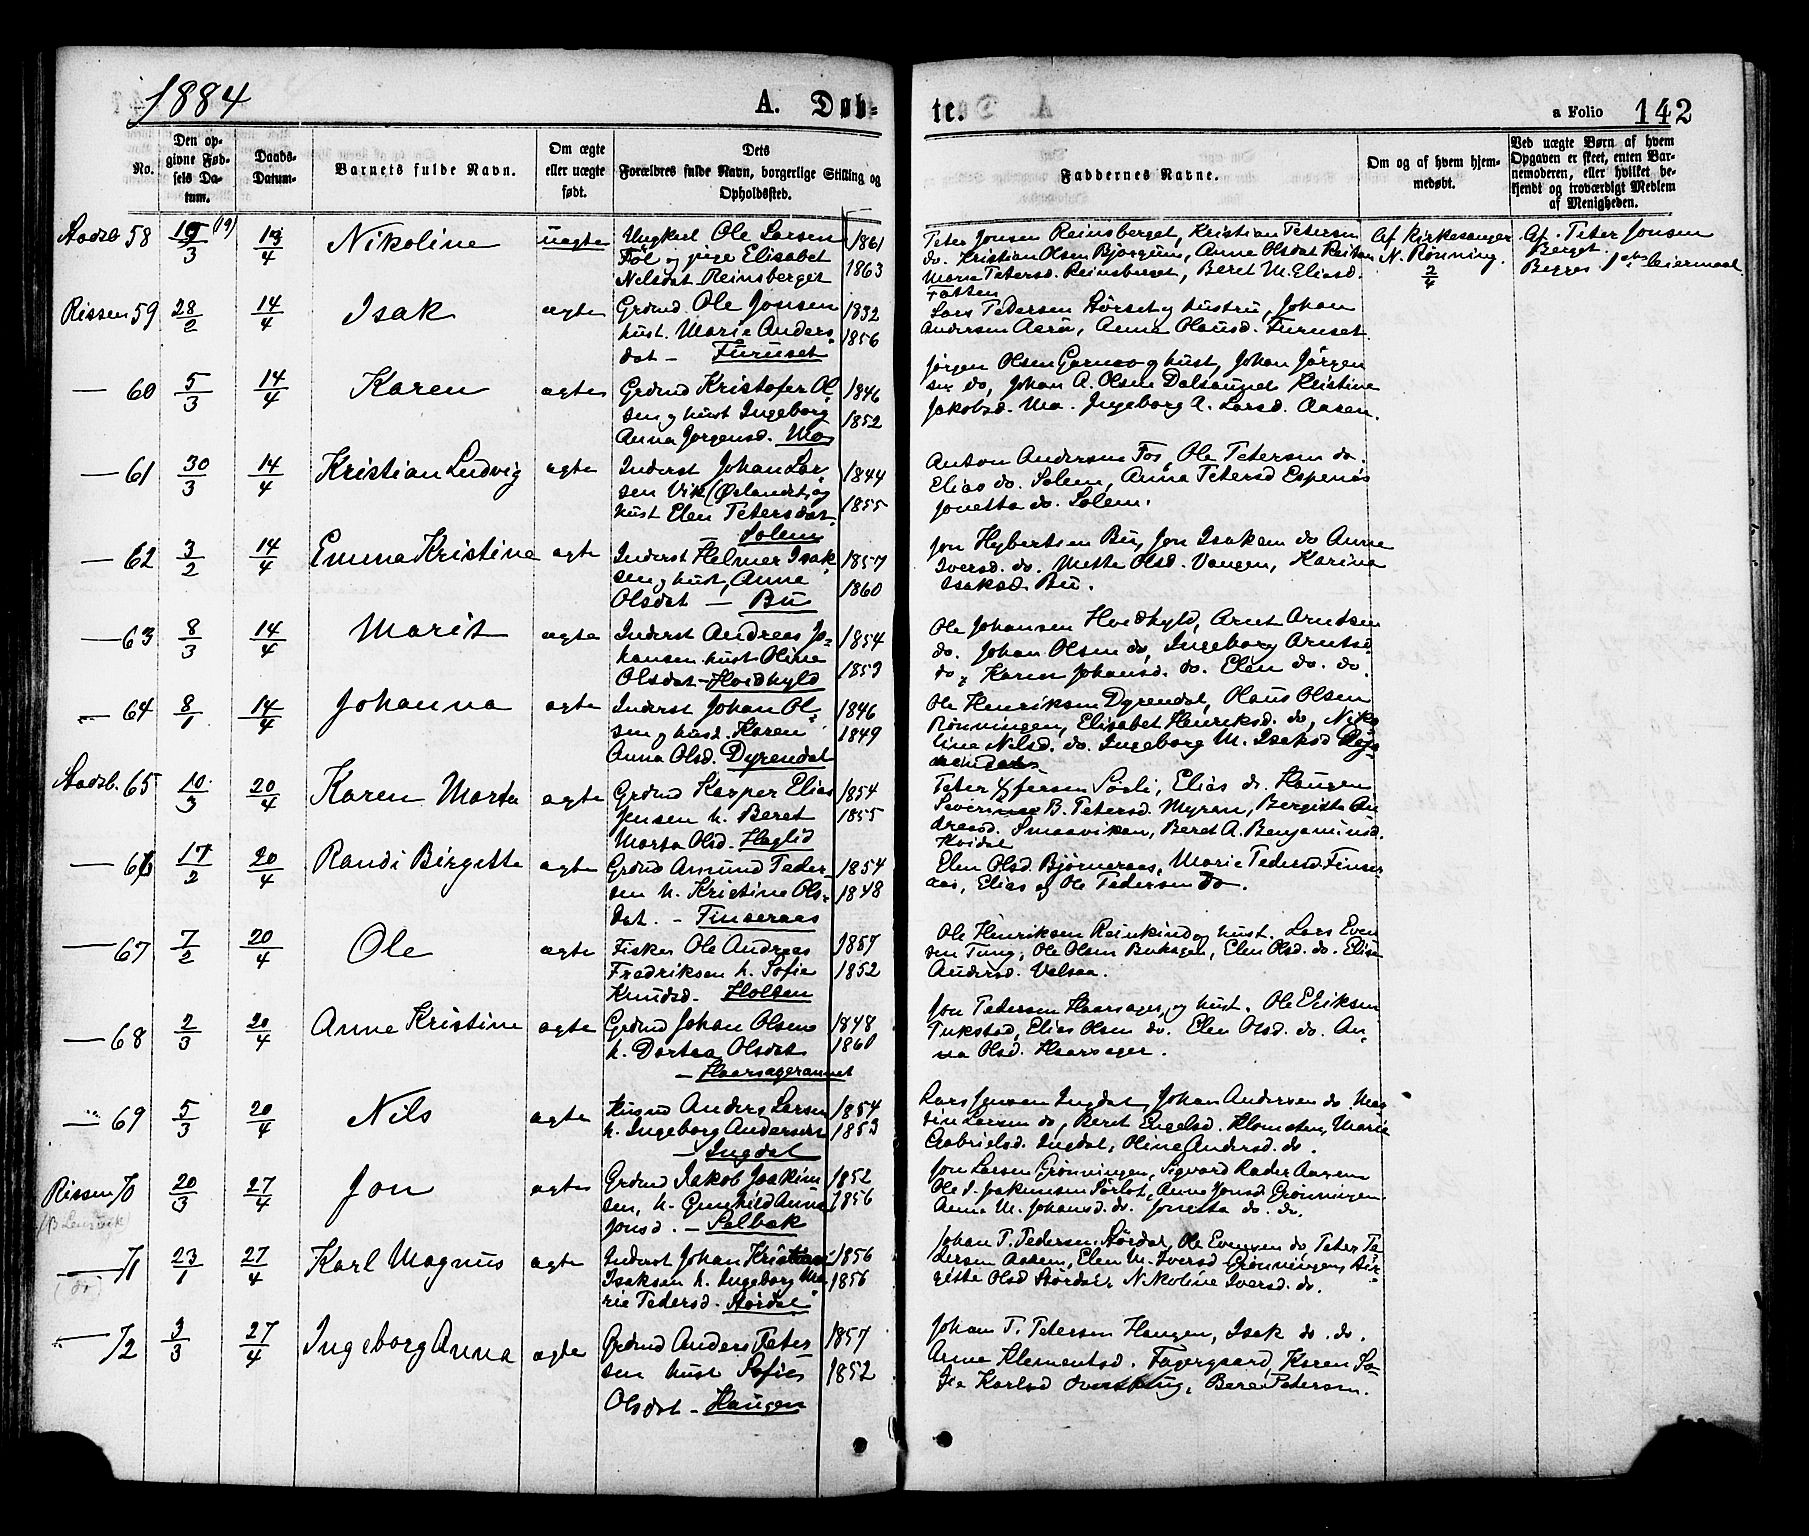 1884
A. Døb-
te.
a Folio 142
No.
Den op-
givne Fød-
sels Da-
tum.
Daabs-
Datum.
Barnets fulde Navn.
Om ægte
eller uægte
født.
Dets
Forældres fulde Navn, borgerlige Stilling og
Opholdssted.
Faddernes Navne.
Om og af hvem hjem-
medøbt.
Ved uægte Børn af hvem
Opgaven er skeet, enten Bar-
nemoderen, eller hvilket be-
kjendt og troværdigt Medlem
af Menigheden.
Stadsb 58 /3 13/4 Nikoline uægte
Ungkarl Ole Larsen 1861
Føl og pige Elisabet 1863
Nelsdat Reinsberget
Peter Jonsen Reinsberget, Kristian Petersen
do. Kristian Olsen Bjørgum, Anne Olsdat
Marie Petersd. Reinsbuset, Beret M. Eliasd.
Af kirkesanger
N. Rønning.
2/4
Af Peter Jonsen
Berget.
Begges 1ste leiermaal
Rissen 59 28/2 14/4 Isak ægte
Grdmd Ole Jonsen 1832
hust. Marie Anders- 1856
dat - Furuset
Lars Pedersen Størset og hustru, Johan
Andersen Aarø, Anne Olausd. Furuset
— 60 5/3 14/4 Karen ægte
Grdmd Kristofer Ol- 1846
sen og hust Ingeborg 1852
Anna Jørgensd. Mo
Jørgen Olsen og hust, Johan Jørgen
sen do, Johan A. Olsen Dalsaunet Kristine
Jakobsd. Mo. Ingeborg A. Larsd. Aasen.
— 61 30/3 14/4 Kristian Ludvig ægte
Inderst Johan Lar- 1844
sen Vik (Ørlandet) og 1855
hust Elen Petersdat.
- Solem
Anton Andersen Fos, Ole Petersen do.
Elias do. Solem, Anna Petersd Espenæs
Jonetta do. Solem.
— 62 3/2 14/4 Emma Kristine ægte
Inderst Helmer Isak- 1857
sen og hust, Anne 1860
Olsdat — Bu
Jon Hybertsen Bu, Jon Isaksen do Anne
Iversd. do. Mette Olsd. Vangen, Karine
Isaksd. Bu.
— 63 8/3 14/4 Marit ægte
Inderst Andreas Jo- 1854
hansen hust Oline 1853
Olsdat - Hvidhyld
Ole Johansen Hvidhyld, Arnt Arntsen
do. Johan Olsen do, Ingeborg Arntsd
do, Karen Johansd. do. Elen do. do.
— 64 8/1 14/4 Johanna ægte
Inderst Johan Ol- 1846
sen og hust. Karen 1849
Anna Olsd. Dyrendal
Ole Henriksen Dyrendal, Olaus Olsen
Rønningen, Elisabet Henriksd. do, Niko
line Nelsd. do. Ingeborg M. Isaksd
Stadsb. 65 10/3 20/4 Karen Marta ægte
Grdmd Kasper Elias 1854
Jensen h. Beret 1855
Marta Olsd. Haglid
Peter Søli, Elias do. Haugen
Severine B. Petersd. Myran, Bergitte An
dreasd. Smaaviken, Beret A. Benjaminsd.
Kvidal
— 66 17/2 20/4 Randi Birgitte ægte
Grdmd Amund Peder 1854
sen h. Kristine Ols- 1848
dat. - Finseraas
Elen Olsd Bjørneraas, Marie Pedersd. Finser
aas, Elias og Ole Pedersen do.
— 67 7/2 20/4 Ole ægte
Fisker Ole Andreas 1857
Fredriksen h. Sofie 1852
Knudsd. Holsen
Ole Henriksen Reinkind og hust. Lars Even
sen Tung, Ole Olsen Bakhagen, Elen Olsd. do. Elise
Andersd. Valsaa.
— 68 2/3 20/4 Anne Kristine ægte
Grdmd Johan Olsen 1848
h. Dortea Olsdat 1860
- Haarsageraunet
Jon Pedersen Haarsager, og hust. Ole Eriksen
Pukstad, Elias Olsen do. Elen Olsd. do. An-
na Olsd. Haarsager.
— 69 5/3 20/4 Nils ægte
Husmd Anders Larsen 1854
h. Ingeborg Andersdat 1853
- Ingdal
Lars Jensen Ingdal, Johan Andersen do. Mar
tin Larsen do, Beret Engelsd. Klomsten, Marie
Gabrielsd. Ingdal, Oline Andersd. do.
Rissen 70 20/3 27/4 Jon ægte
(B Lensvik)
Grdmd Jakob Joakim 1852
sen, h. Gunhild Anna 1856
Jonsd. - Selbæk
Jon Larsen Grønningen, Sigvard Rader Aasen
Ole J. Joakimsen Sørlot, Anne Jonsd Grønningen
Anna M. Johansd. do. Jonetta do. do.
— 71 23/1 27/4 Karl Magnus ægte
(do)
Inderst Johan Kristian 1856
Isaksen h. Ingeborg Ma- 1856
rie Pedersd. Størdal
Johan P. Pedersen Størdal, Ole Evensen do, Peter Pe
dersen Aasem, Elen M. Iversd Grønningen, Bir-
gitte Olsd Størdal, Nikoline Iversd. do.
— 72 3/3 27/4 Ingeborg Anna ægte
Grdmd Anders Peter 1857
sen hust Sofie 1852
Olsdat - Haugen
Johan P. Petersen Haugen, Isak do. do.
Anne Klementsd. Fagergaard, Karen So-
fie Karlsd Beret Petersen.